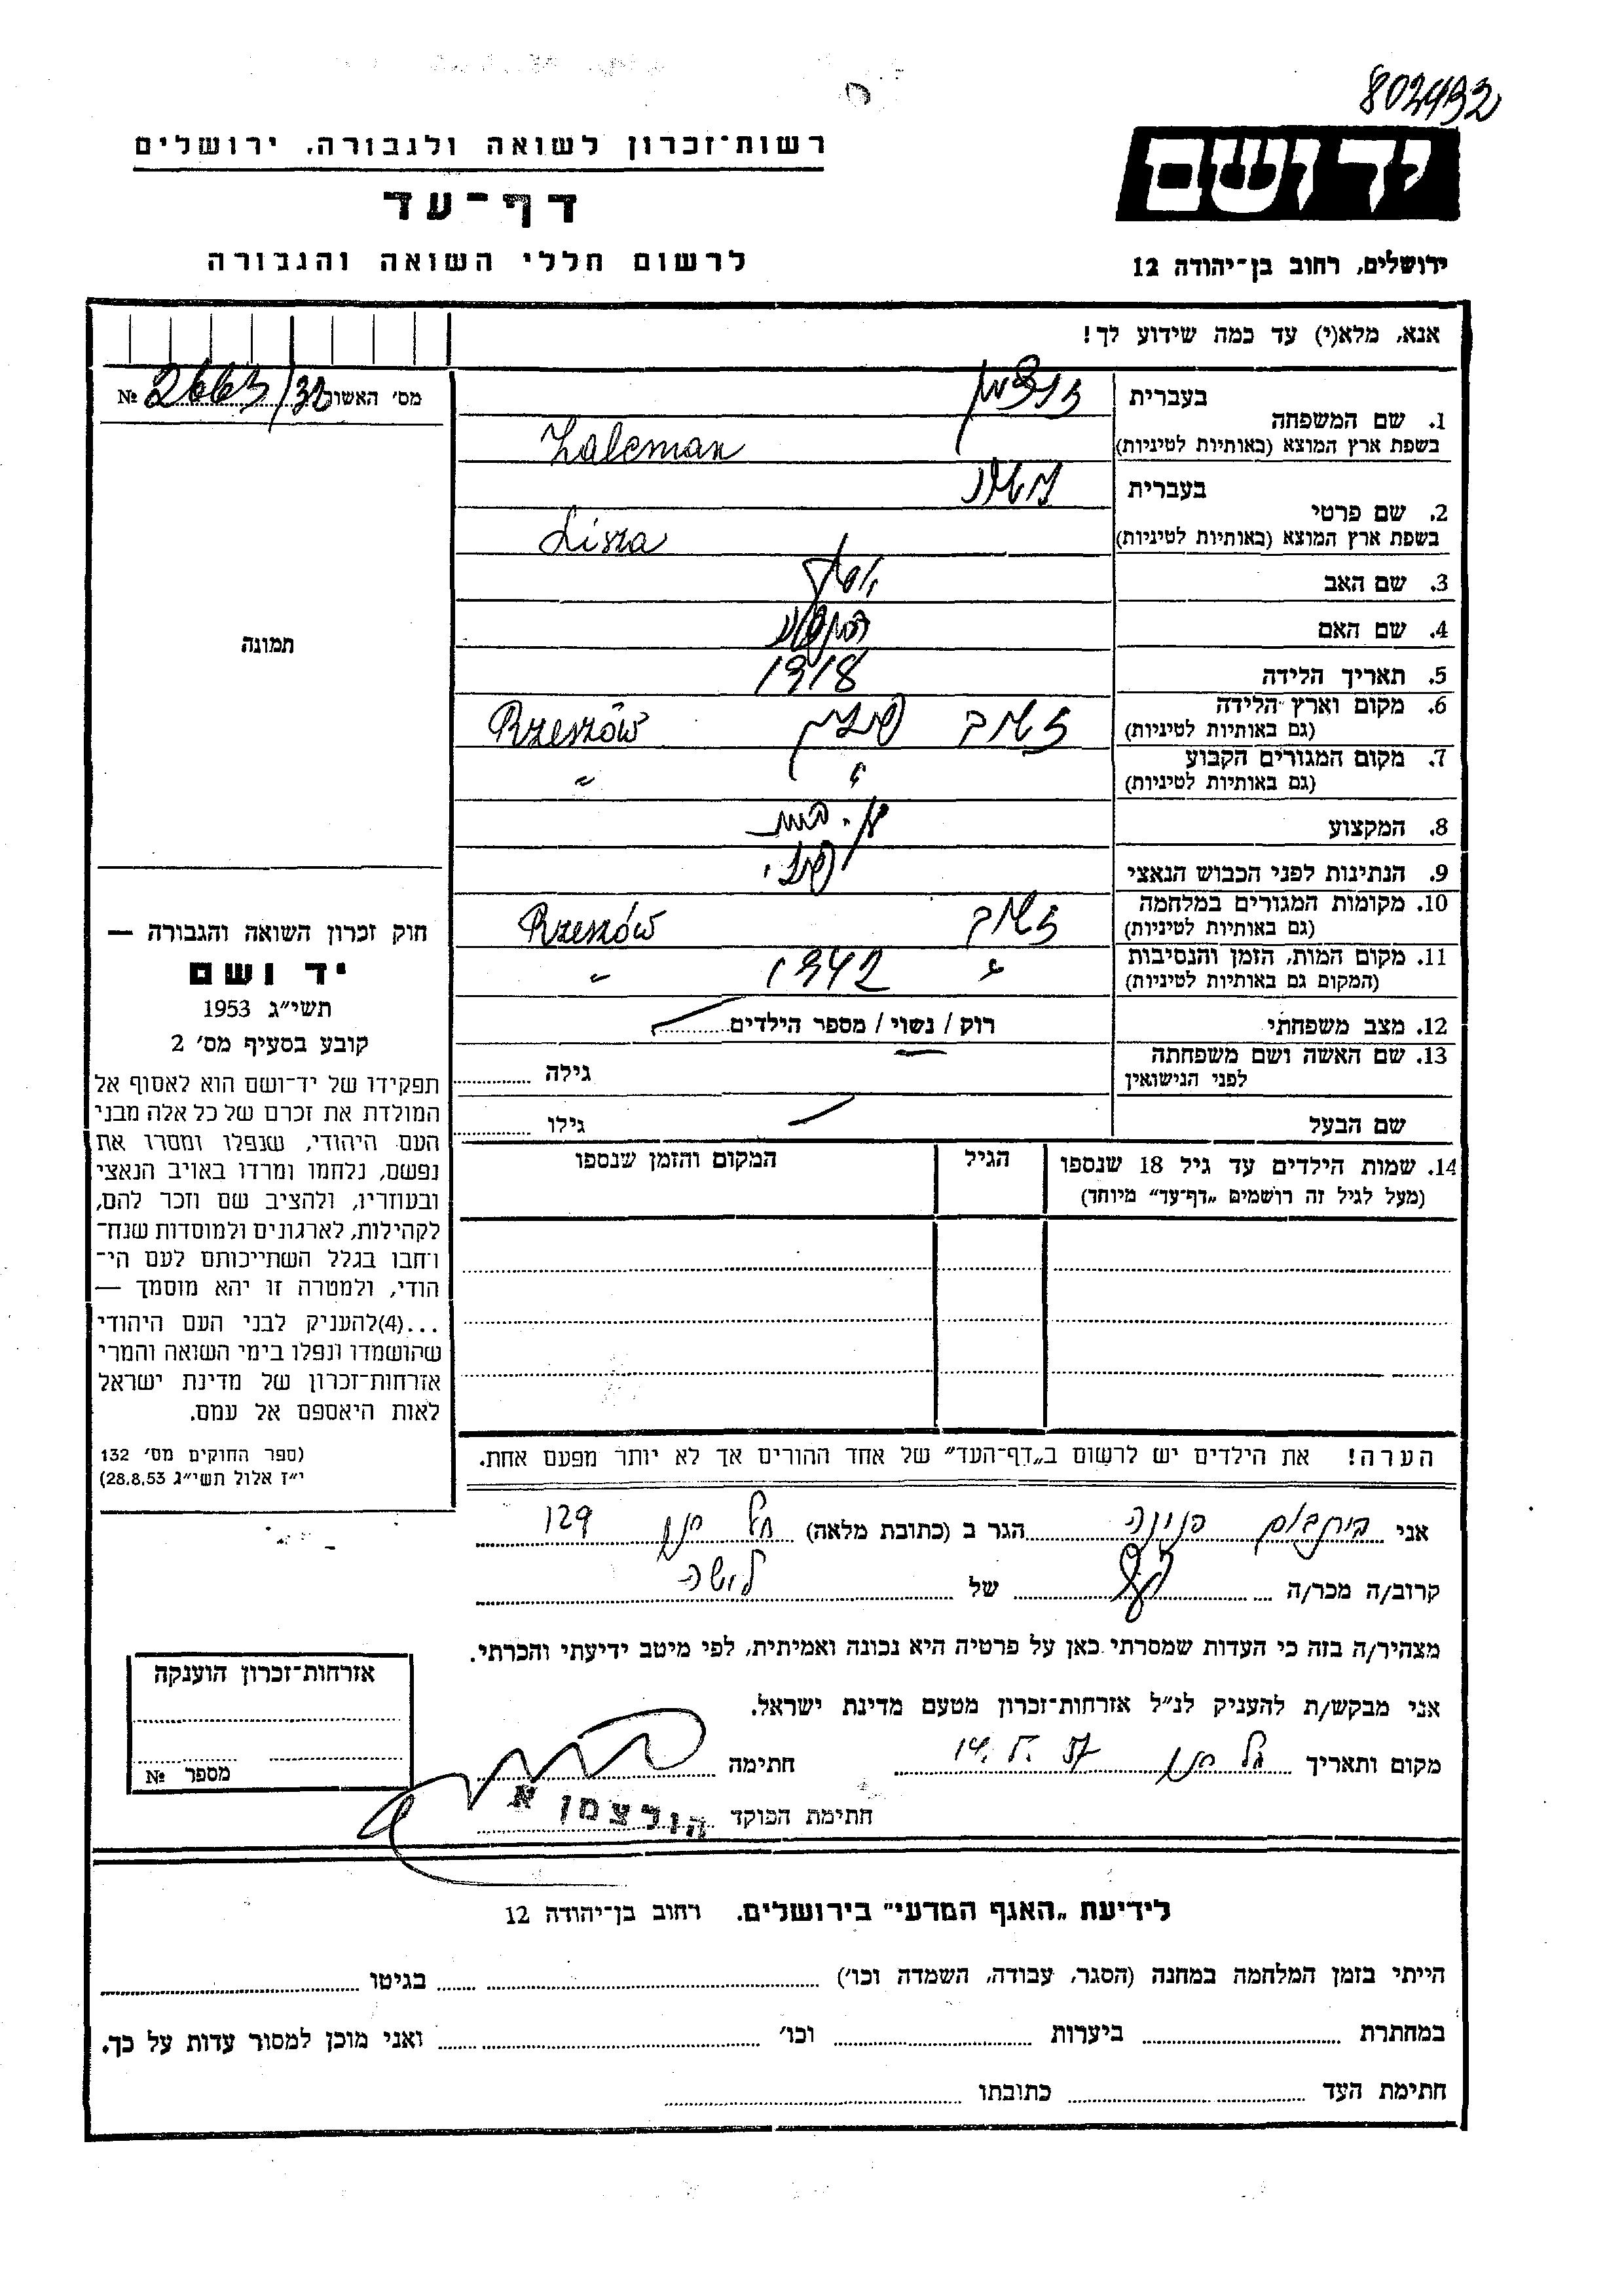 802432
יד ושם
ירושלים, רחוב בן־יהודה 12
רשות־זכרון לשואה ולגבורה, ירושלים
דף־עד
לרשום חללי השואה והגבורה
אנא, מלא(י) עד כמה שידוע לך!
1. שם המשפחה
בעברית
בשפת ארץ המוצא (באותיות לטיניות) Zaleman
2. שם פרטי
בעברית
בשפת ארץ המוצא (באותיות לטיניות) Lisza
3. שם האב יוסף
4. שם האם
5. תאריך הלידה 1918
6. מקום וארץ הלידה פולין Rzeszów
(גם באותיות לטיניות)
7. מקום המגורים הקבוע " "
(גם באותיות לטיניות)
8. המקצוע
9. הנתינות לפני הכבוש הנאצי פולני
10. מקומות המגורים במלחמה Rzeszów
(גם באותיות לטיניות)
11. מקום המות, הזמן והנסיבות " 1942 "
(המקום גם באותיות לטיניות)
12. מצב משפחתי רוק / נשוי / מספר הילדים
13. שם האשה ושם משפחתה
לפני הנישואין גילה
שם הבעל גילו
14. שמות הילדים עד גיל 18 שנספו הגיל המקום והזמן שנספו
(מעל לגיל זה רושמים „דף־עד" מיוחד)
מס׳ האשור № 2663/32
תמונה
חוק זכרון השואה והגבורה —
יד ושם
תשי״ג 1953
קובע בסעיף מס׳ 2
תפקידו של יד־ושם הוא לאסוף אל
המולדת את זכרם של כל אלה מבני
העם היהודי, שנפלו ומסרו את
נפשם, נלחמו ומרדו באויב הנאצי
ובעוזריו, ולהציב שם וזכר להם,
לקהילות, לארגונים ולמוסדות שנח־
רחבו בגלל השתייכותם לעם הי־
הודי, ולמטרה זו יהא מוסמך —
...(4)להעניק לבני העם היהודי
שהושמדו ונפלו בימי השואה והמרי
אזרחות־זכרון של מדינת ישראל
לאות היאספם אל עמם.
(ספר החוקים מס׳ 132
י״ז אלול תשי״ג 28.8.53)
הערה! את הילדים יש לרשום ב„דף־העד" של אחד ההורים אך לא יותר מפעם אחת.
אני פנינה הגר ב (כתובת מלאה) 129
קרוב/ה מכר/ה של
מצהיר/ה בזה כי העדות שמסרתי כאן על פרטיה היא נכונה ואמיתית, לפי מיטב ידיעתי והכרתי.
אני מבקש/ת להעניק לנ״ל אזרחות־זכרון מטעם מדינת ישראל.
מקום ותאריך 14. V. 57 חתימה
חתימת הפוקד הורצמן א
אזרחות־זכרון הוענקה
מספר №
לידיעת „האגף המדעי" בירושלים. רחוב בן־יהודה 12
הייתי בזמן המלחמה במחנה (הסגר, עבודה, השמדה וכו׳) בגיטו
במחתרת ביערות וכו׳ ואני מוכן למסור עדות על כך.
חתימת העד כתובתו